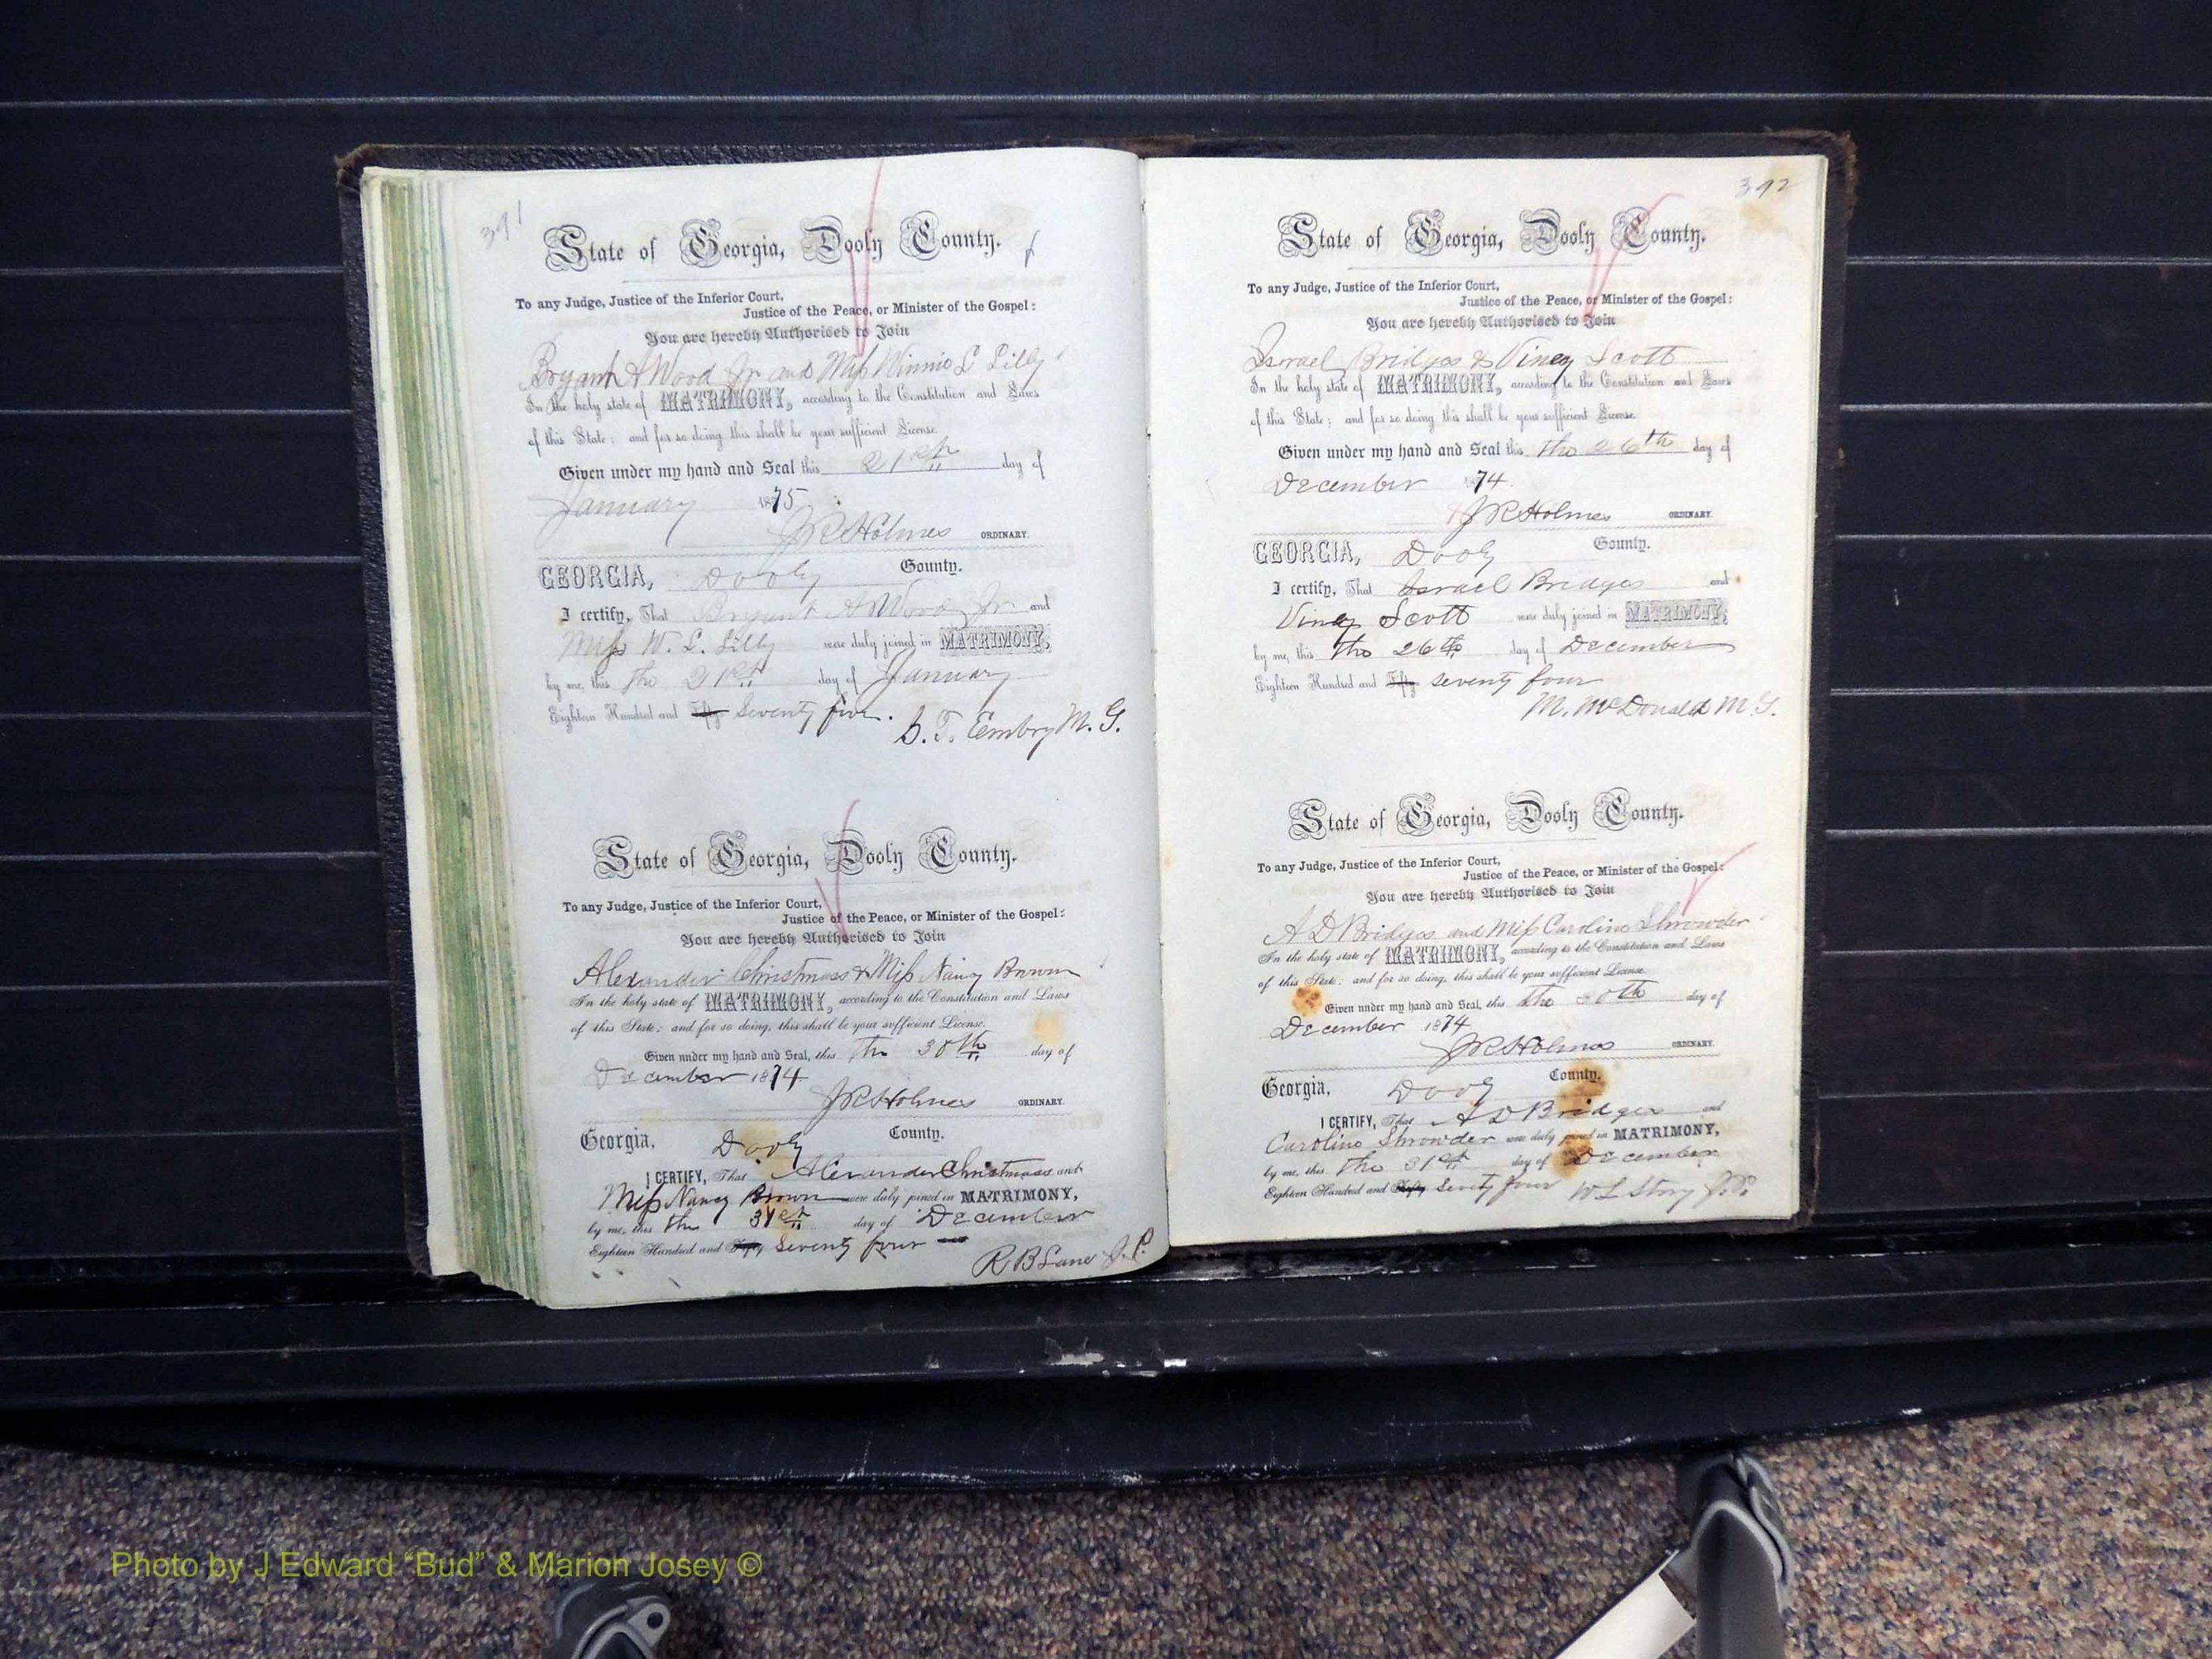 391
State of Georgia, Dooly County.
To any Judge, Justice of the Inferior Court,
Justice of the Peace, or Minister of the Gospel:
You are hereby Authorised to Join
Bryant A Wood Jr and Miss Winnie L Lilly
In the holy state of MATRIMONY, according to the Constitution and Laws
of this State; and for so doing this shall be your sufficient License.
Given under my hand and Seal this 21st day of
January 1875
J R Holmes ORDINARY.
GEORGIA, Dooly County.
I certify, That Bryant A Wood Jr and
Miss W. L. Lilly were duly joined in MATRIMONY,
by me, this the 21st day of January
Eighteen Hundred and Fifty Seventy five.
T. Embry M. G.
State of Georgia, Dooly County.
To any Judge, Justice of the Inferior Court,
Justice of the Peace, or Minister of the Gospel:
You are hereby Authorised to Join
Alexander Christmass & Miss Nancy Brown
In the holy state of MATRIMONY, according to the Constitution and Laws
of this State; and for so doing, this shall be your sufficient License.
Given under my hand and Seal, this the 30th day of
December 1874
J R Holmes ORDINARY.
Georgia, Dooly County.
I CERTIFY, That Alexander Christmass and
Miss Nancy Brown were duly joined in MATRIMONY,
by me, this the 31st day of December
Eighteen Hundred and Fifty Seventy four
R B Lane J. P.
392
State of Georgia, Dooly County.
To any Judge, Justice of the Inferior Court,
Justice of the Peace, or Minister of the Gospel:
You are hereby Authorised to Join
Isrrael Bridges & Viney Scott
In the holy state of MATRIMONY, according to the Constitution and Laws
of this State; and for so doing this shall be your sufficient License.
Given under my hand and Seal this the 26th day of
December 1874
J R Holmes ORDINARY.
GEORGIA, Dooly County.
I certify, That Israel Bridges and
Viney Scott were duly joined in MATRIMONY,
by me, this the 26th day of December
Eighteen Hundred and Fifty seventy four
M. McDonald M. G.
State of Georgia, Dooly County.
To any Judge, Justice of the Inferior Court,
Justice of the Peace, or Minister of the Gospel:
You are hereby Authorised to Join
A D Bridges and Miss Caroline Shrowder
In the holy state of MATRIMONY, according to the Constitution and Laws
of this State; and for so doing, this shall be your sufficient License
Given under my hand and Seal, this the 30th day of
December 1874
J R Holmes ORDINARY.
Georgia, Dooly County.
I CERTIFY, That A D Bridges and
Caroline Shrowder were duly joined in MATRIMONY,
by me, this the 31st day of December
Eighteen Hundred and Fifty Seventy four W L Story J. P.
Photo by J Edward “Bud” & Marion Josey ©